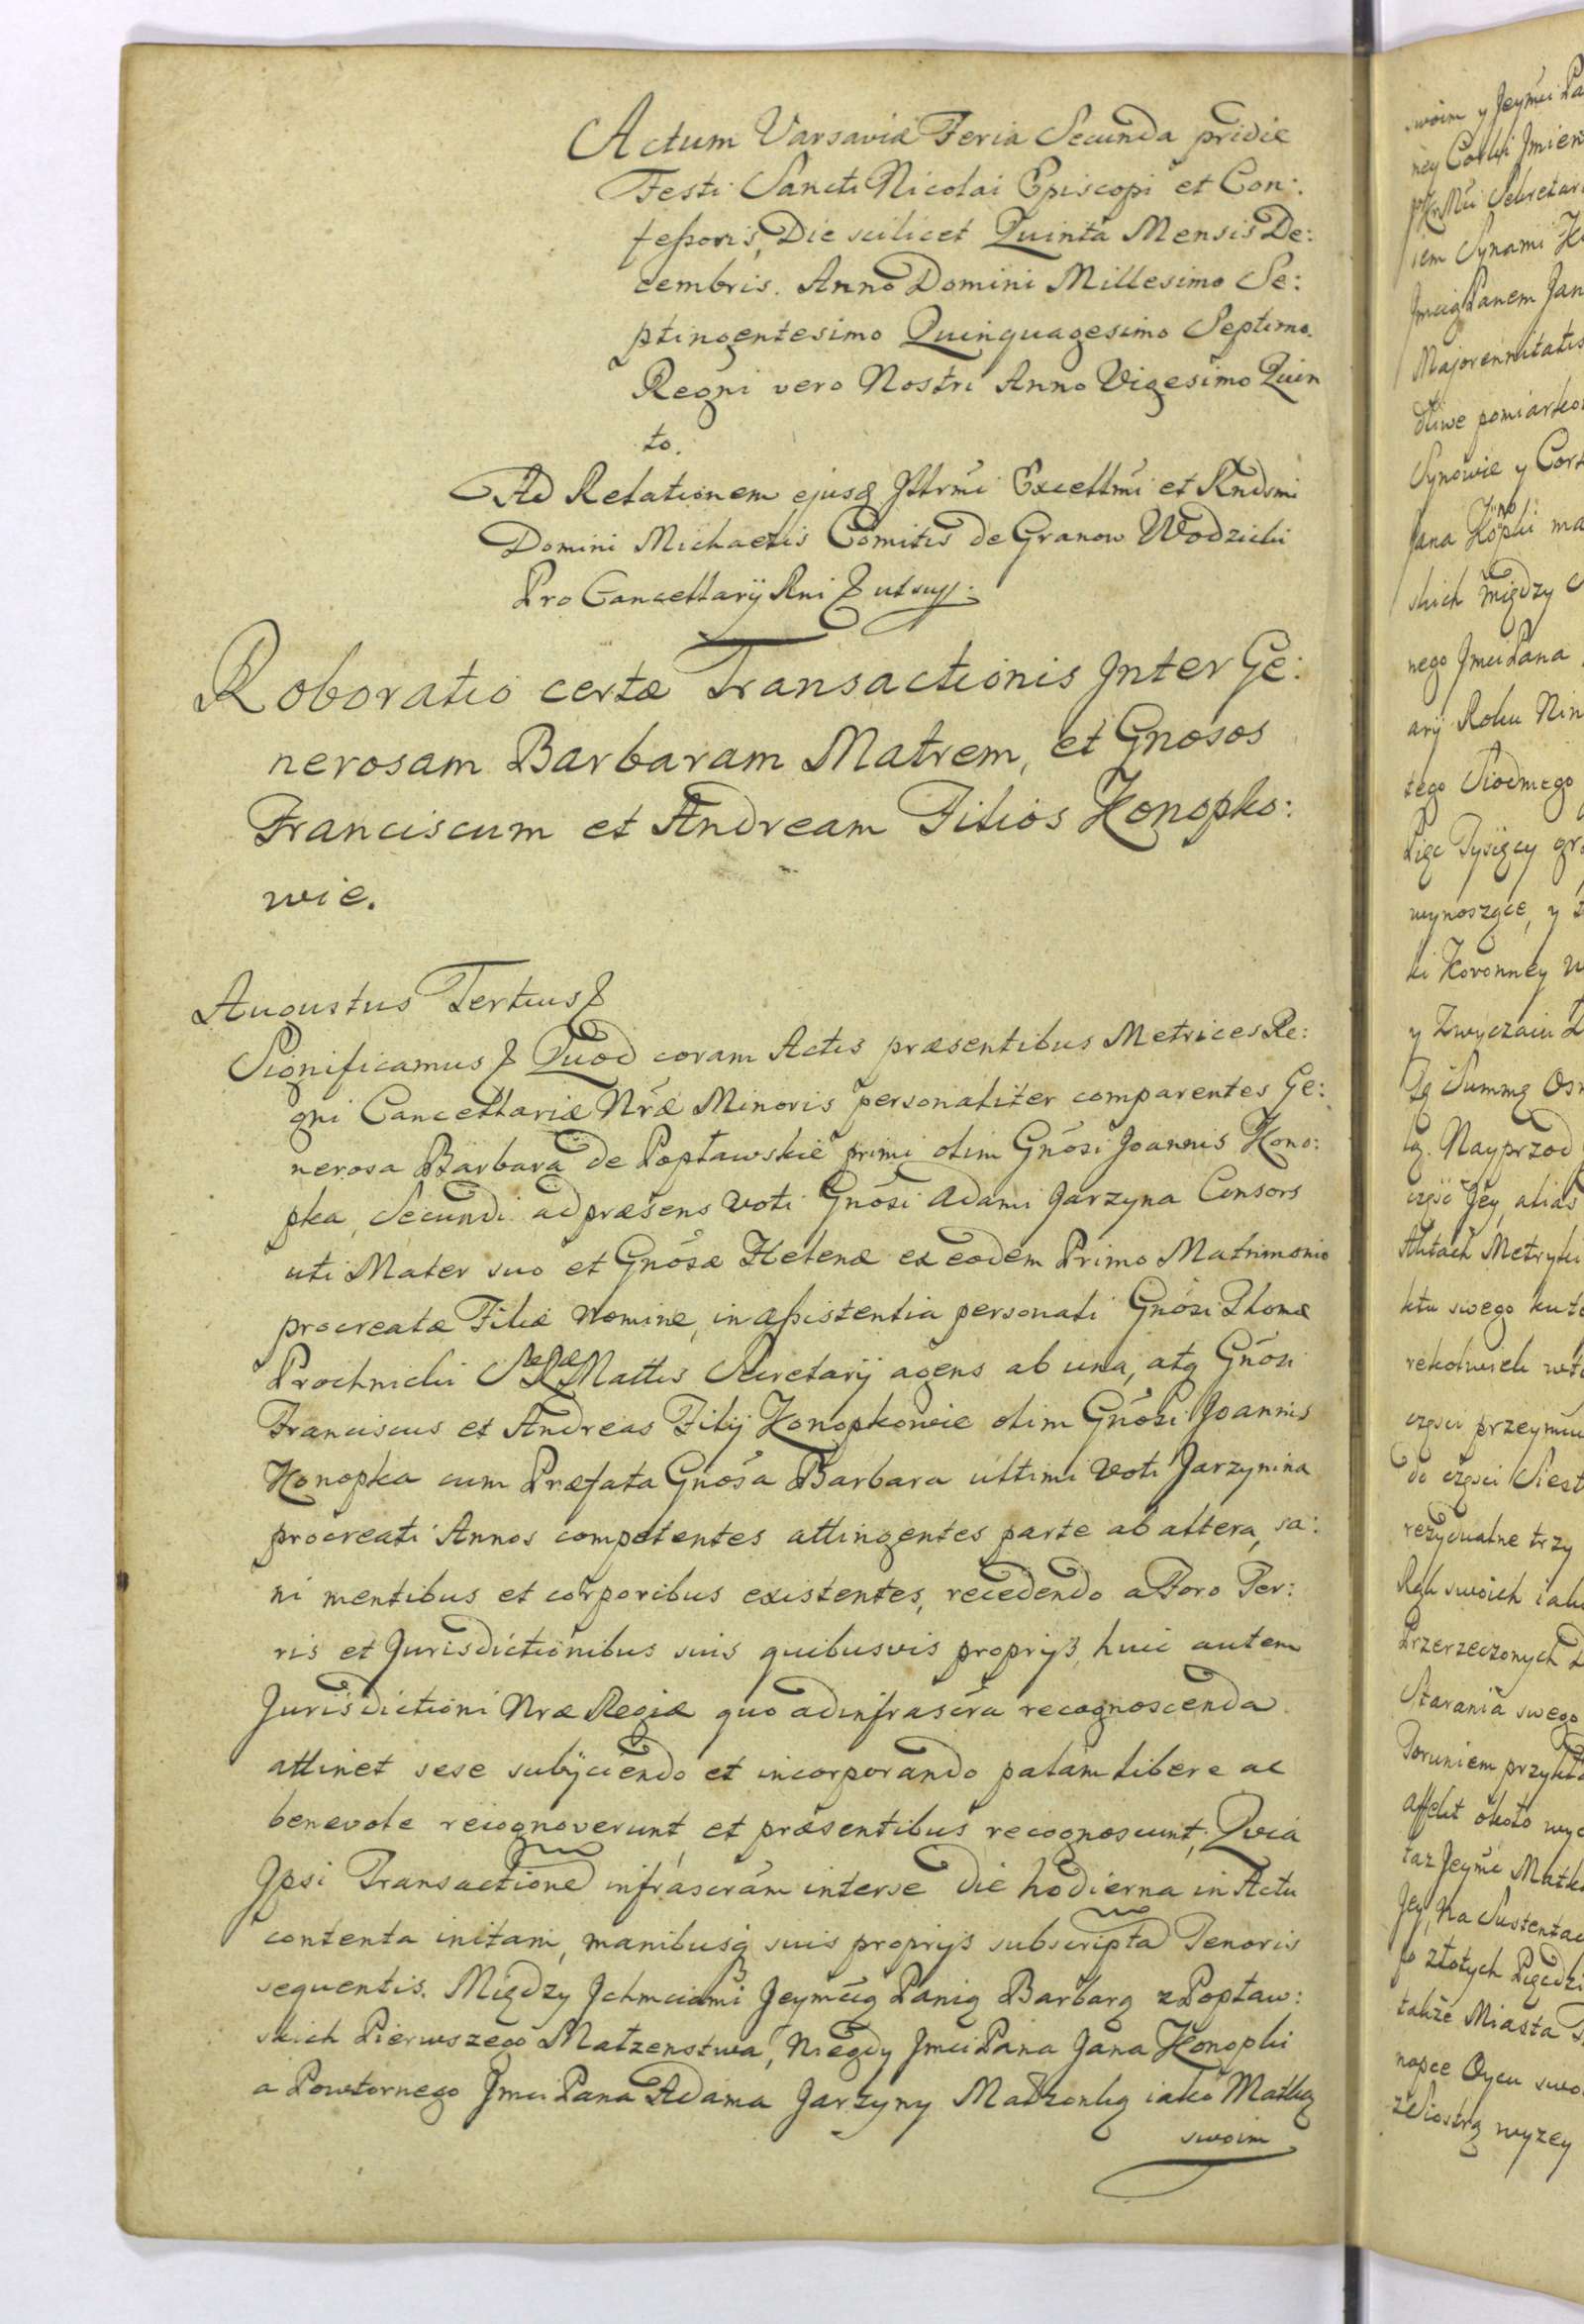 Actum Varsaviæ Feria Secunda pridie
Festi Sancti Nicolai Episcopi et Con:
feßoris, Die scilicet Quinta Mensis De:
cembris. Anno Domini Millesimo Se:
ptingentesimo Quinquagesimo Septimo.
Regni vero Nostri Anno Vigesimo Quin
to.
Ad Relationem ejusq Jllrmi Excellmi et Rndsmi
Domini Michaelis Comitis de Granow Wodzicki
Pro Cancellarij Rni & ut supp.
Roboratio certæ Transactionis Jnter Ge:
nerosam Barbaram Matrem, et Gnosos
Franciscum et Andream Filios Konopko:
wie.
Augustus Tertius &
Significamus & Quod coram Actis præsentibus Metrices Re:
gni Cancellariæ Nræ Minoris personaliter comparentes Ge:
nerosa Barbara de Popławskie primi olim Gnosi Joannis Kono:
pka, Secundi ad præsens voti Gnosi Adami Jarzyna Consors
uti Mater suo et Gnosæ Helenæ ex eodem Primo Matrimonio
procreatæ Filiæ Nomine, in aßistentia personali Gnosi Thomæ
Prochnicki S RæMattis Secretarij agens ab una, atq Gnosi
Franciscus et Andreas Filij Konopkowie olim Gnosi Joannis
Konopka cum Præfata Gnosa Barbara ultimi voti Jarzynina
procreati Annos competentes attingentes parte ab altera, sa:
ni mentibus et corporibus existentes, recedendo a Foro Ter:
ris et Jurisdictionibus suis quibusvis proprijs, huic autem
Jurisdictioni Nræ Regiæ quo ad infrascra recognoscenda
attinet sese subijciendo et incorporando palam libere ac
benevole recognoverunt, et præsentibus recognoscunt, Qvia
Jpsi Transactione infrascram interse die hodierna in Actu
contenta initam, manibusq suis proprijs subscripta Tenoris
sequentis. Między Jchmciami Jeymcią Panią Barbarą z Popław:
skich Pierwszego Małzenstwa, Niegdy Jmci Pana Jana Konopki
a Powtornego Jmci Pana Adama Jarzyny Małzonką iako Matką
swoim
swoim y Jeymci Pa
ney Corki Jmien
Secretari
iem Synami Ko
Jmcią Panem Jan
Majorennitatis
dliwe pomiarko
Synowie y Cork
Jana Konopki ma
skich między
nego Jmci Pana
arij Roku Nin
tego Siodmego
Pięc Tysięcy gr
wynoszące, y
ki Koronney w
y Zwyczaiu
tą Summą Osm
lą. Nayprzod
częsc Jey, alias
Aktach Metryki
ktu swego
części przeymu
do części Siest
rezydualne trzy
Rąk swoich iako
Przerzeczonych D
Starania swego
Toruniem przykł
affekt około wyc
taz Jeymc Matk
Jey, Na Sustentac
złotych Pięcdzi
takze Miasta
nopce Oycu swo
z Siostrą wyzey